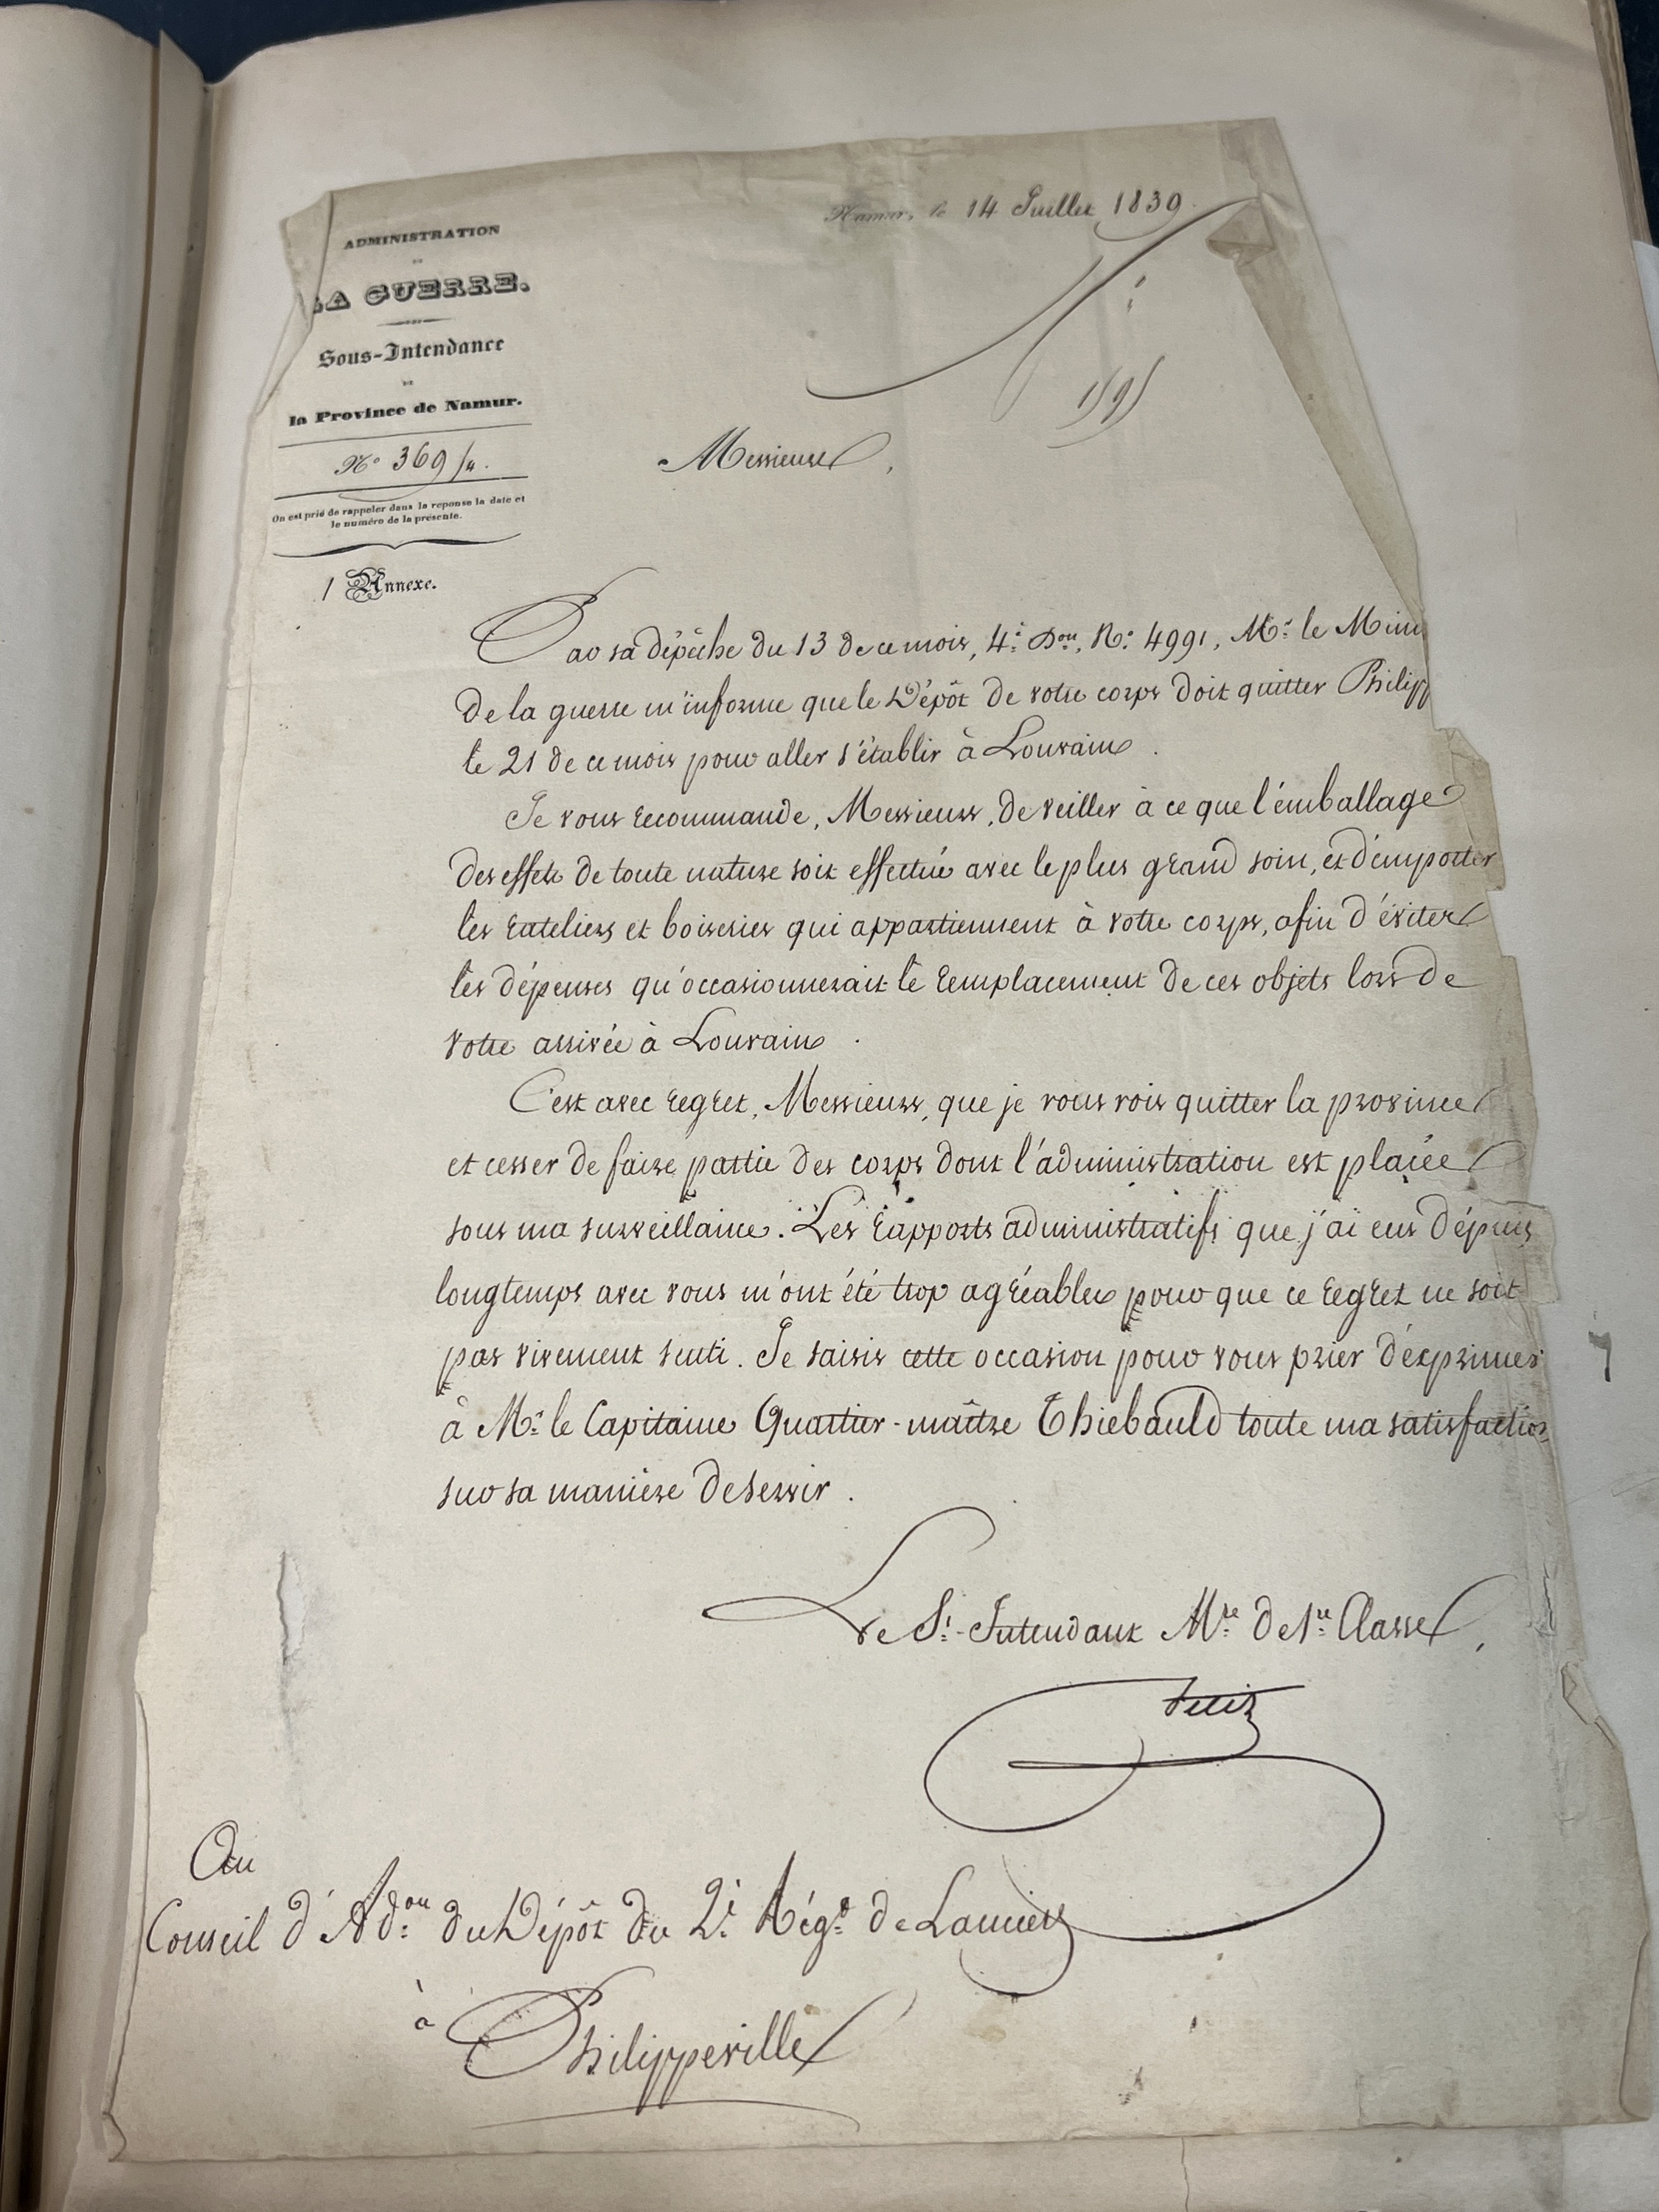 Namur, le 14 Juillet 1839.
ADMINISTRATION
DE
LA GUERRE.
Sous-Intendance
DE
la Province de Namur.
N° 369/4.
On est prié de rappeler dans la reponse la date et
le numéro de la présente.
1 Annexe.
Messieurs,
Par sa dépêche du 13 de ce mois, 4e Don, No 4991, Mr le Mini
de la guerre m'informe que le Dépôt de votre corps doit quitter Philipp
le 21 de ce mois pour aller s'établir à Louvain.
Je vous recommande, Messieurs, de veiller à ce que l'emballage
des effets de toute nature soit effectué avec le plus grand soin, et d'emporter
les rateliers et boiseries qui appartiennent à votre corps, afin d'éviter
les dépenses qu'occasionnerait le remplacement de ces objets lors de
votre arrivée à Louvain.
C'est avec regret, Messieurs, que je vous vois quitter la province
et cesser de faire partie des corps dont l'administration est placée
sous ma surveillance. Les rapports administratifs que j'ai eus dépuis
longtemps avec vous m'ont été trop agréables pour que ce regret ne soit
pas vivement senti. Je saisis cette occasion pour vous prier d'exprimer
à Mr le Capitaine Quartier-maître Thiebauld toute ma satisfaction
sur sa manière de servir.
Le St-Intendant Mre de 1re Classe,
Au
Conseil d'Adon du Dépôt du 2e Régt de Lanciers
à
Philippeville